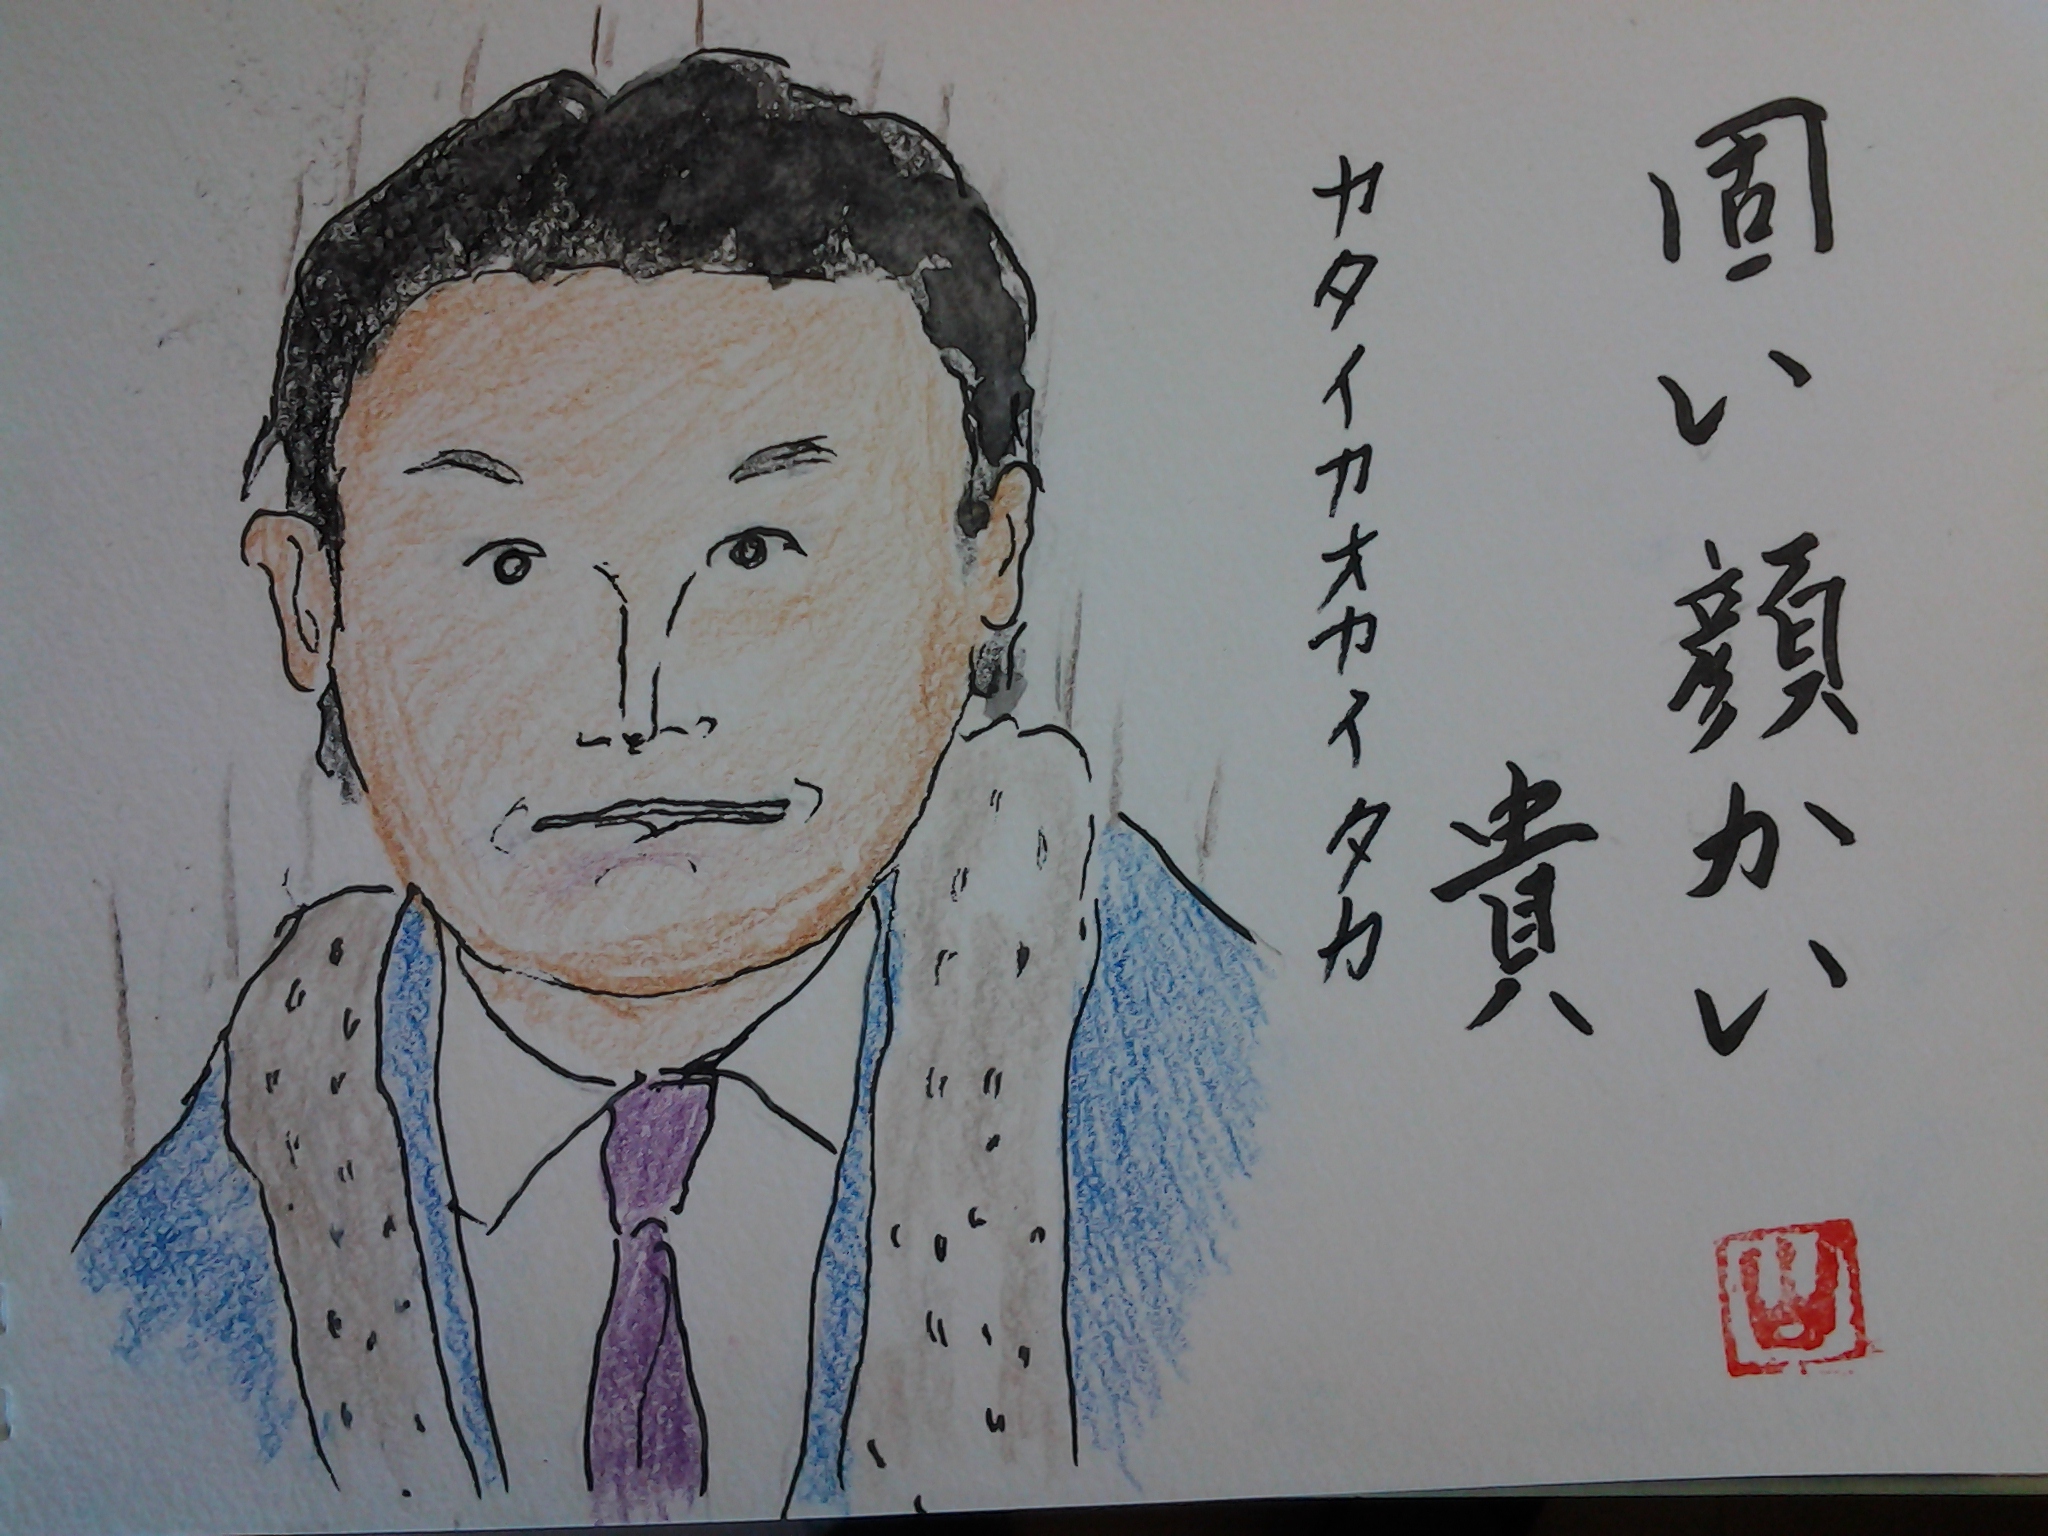 固い顔かい
貴
カタイカオカイタカ